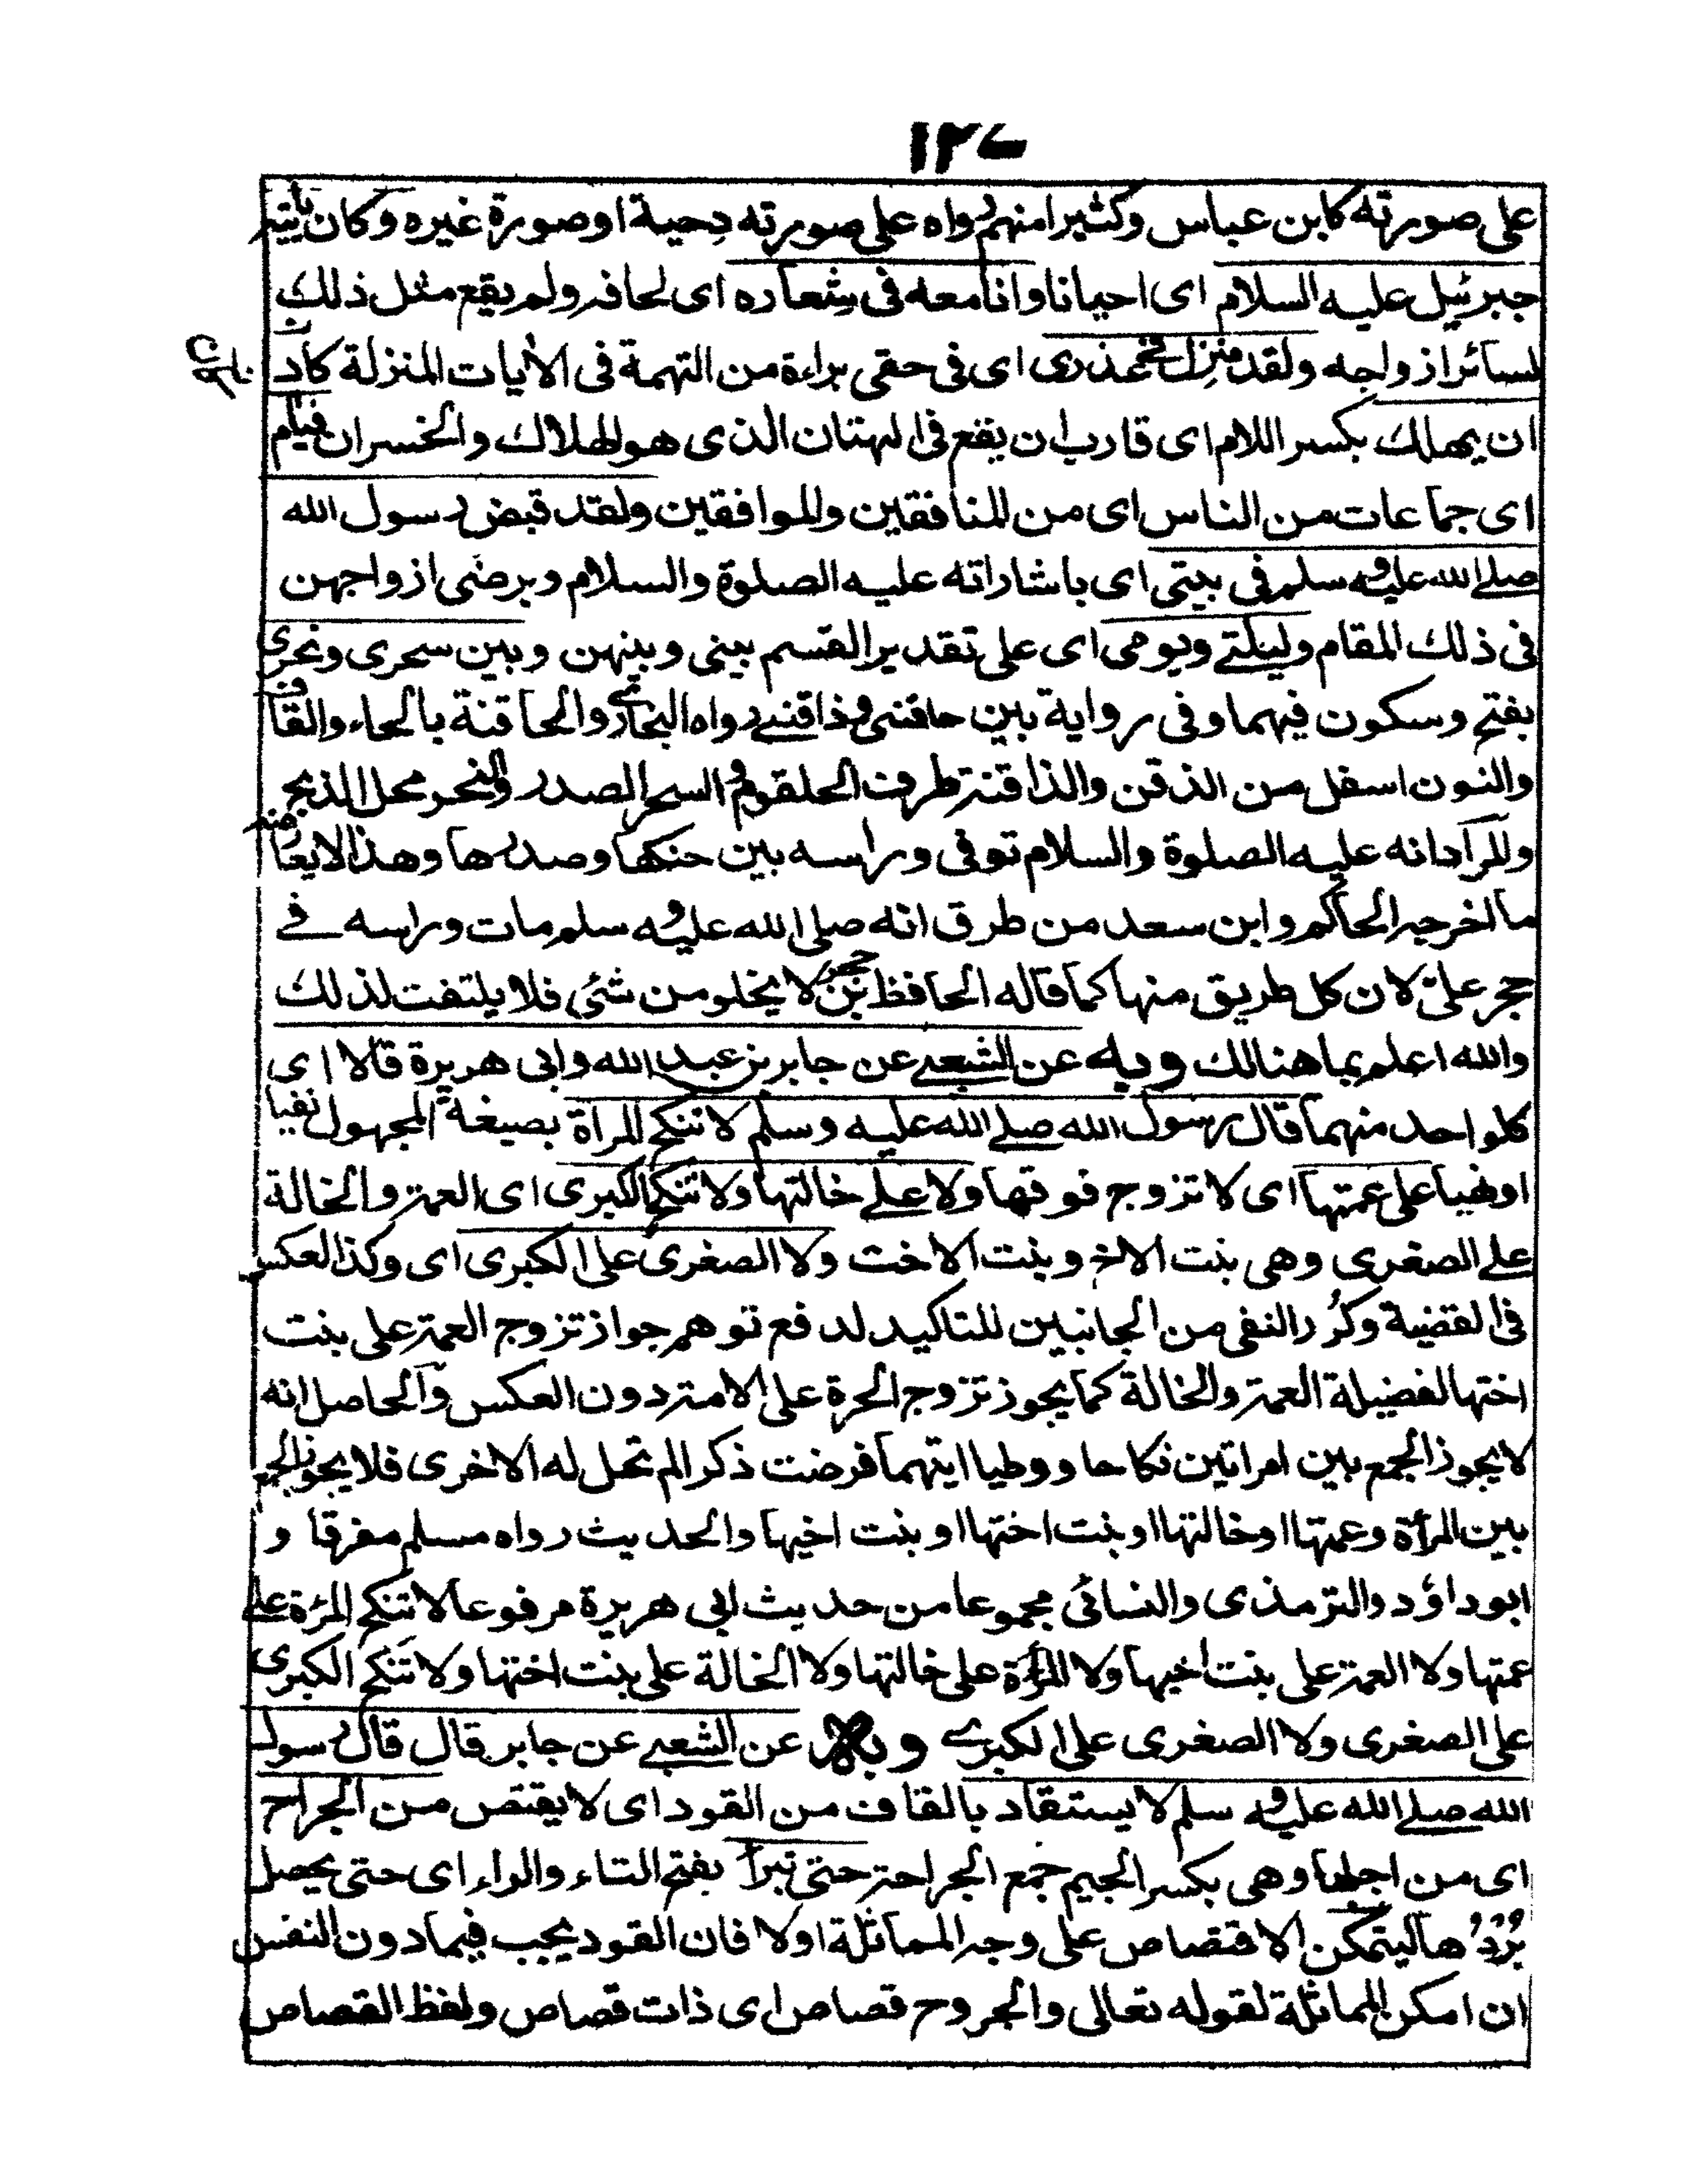 ١٢٧
على صورته كابن عباس وكثيرا منهم رواه على صورته دحية او صورة غيره وكان ياتيه
جبرئيل عليه السلام اى احيانا وانا معه فى شعاره اى لحافه ولم يقع مثل ذلك
لسائر ازواجه ولقد نزل فى عذرى اى فى حقى براءة من التهمة فى الأيات المنزلة كاد
ان يهلك بكسر اللام اى قارب ان يقع فى البهتان الذى هو الهلاك والخسران فيام
اى جماعات من الناس اى من المنافقين والموافقين ولقد قبض رسول الله
صلے الله عليه و سلم فى بيتى اى باشاراته عليه الصلوة والسلام وبرضى ازواجهن
فى ذلك المقام وليلتے ويومى اى على تقدير القسم بينى وبينهن وبين سحرى ونحرى
بفتح وسكون فيهما وفى رواية بين حاقنتى وذاقنتے رواه البخارى والحاقنة بالحاء والقاف
والنون اسفل من الذقن والذاقنة طرف الحلقوم و السحر الصدر والنحر محل الذبح
والمراد انه عليه الصلوة والسلام توفى وراسه بين حنكها وصدرها وهذا لا يعارضه
ما اخرجه الحاكم وابن سعد من طرق انه صلى الله عليه و سلم مات وراسه فے
حجر على لان كل طريق منها كما قاله الحافظ بن حجر لا يخلو من شئ فلا يلتفت لذلك
والله اعلم بما هنالك وبه عن الشعبے عن جابر بن عبد الله وابى هريرة قالا اى
كلواحد منهما قال رسول الله صلے الله عليه وسلم لا تنكح المراة بصيغة المجهول نفيا
اونهيا على عمتها اى لا تزوج فوقها ولا علے خالتها ولا تنكح الكبرى اى العمة والخالة
علے الصغرى وهى بنت الاخ وبنت الاخت ولا الصغرى على الكبرى اى وكذا العكس
فى القضية وكرر النفى من الجانبين للتاكيد لدفع توهم جواز تزوج العمة على بنت
اختها لفضيلة العمة والخالة كما يجوز تزوج الحرة على الامة دون العكس والحاصل انه
لا يجوز الجمع بين امراتين نكاحا ووطيا ايتهما فرضت ذكرا لم تحل له الاخرى فلا يجوز الجمع
بين المرأة وعمتها اوخالتها اوبنت اختها اوبنت اخيها والحديث رواه مسلم مفرقا و
ابوداؤد والترمذى والنسائى مجموعا من حديث ابى هريرة مرفوعا لا تنكح المرءة علے
عمتها ولا العمة على بنت اخيها ولا المرأة على خالتها ولا الخالة على بنت اختها ولا تنكح الكبرى
على الصغرى ولا الصغرى على الكبرے وبه عن الشعبے عن جابر قال قال رسول
الله صلے الله عليه و سلم لا يستقاد بالقاف من القود اى لا يقتص من الجراح
اى من اجلها وهى بكسر الجيم جمع الجراحة حتى تبرأ بفتح التاء والراء اى حتى يحصل
برؤها ليتمكن الاقتصاص على وجه المماثلة اولا فان القود يجب فيما دون النفس
ان امكن المماثلة لقوله تعالى والجروح قصاص اى ذات قصاص ولفظ القصاص